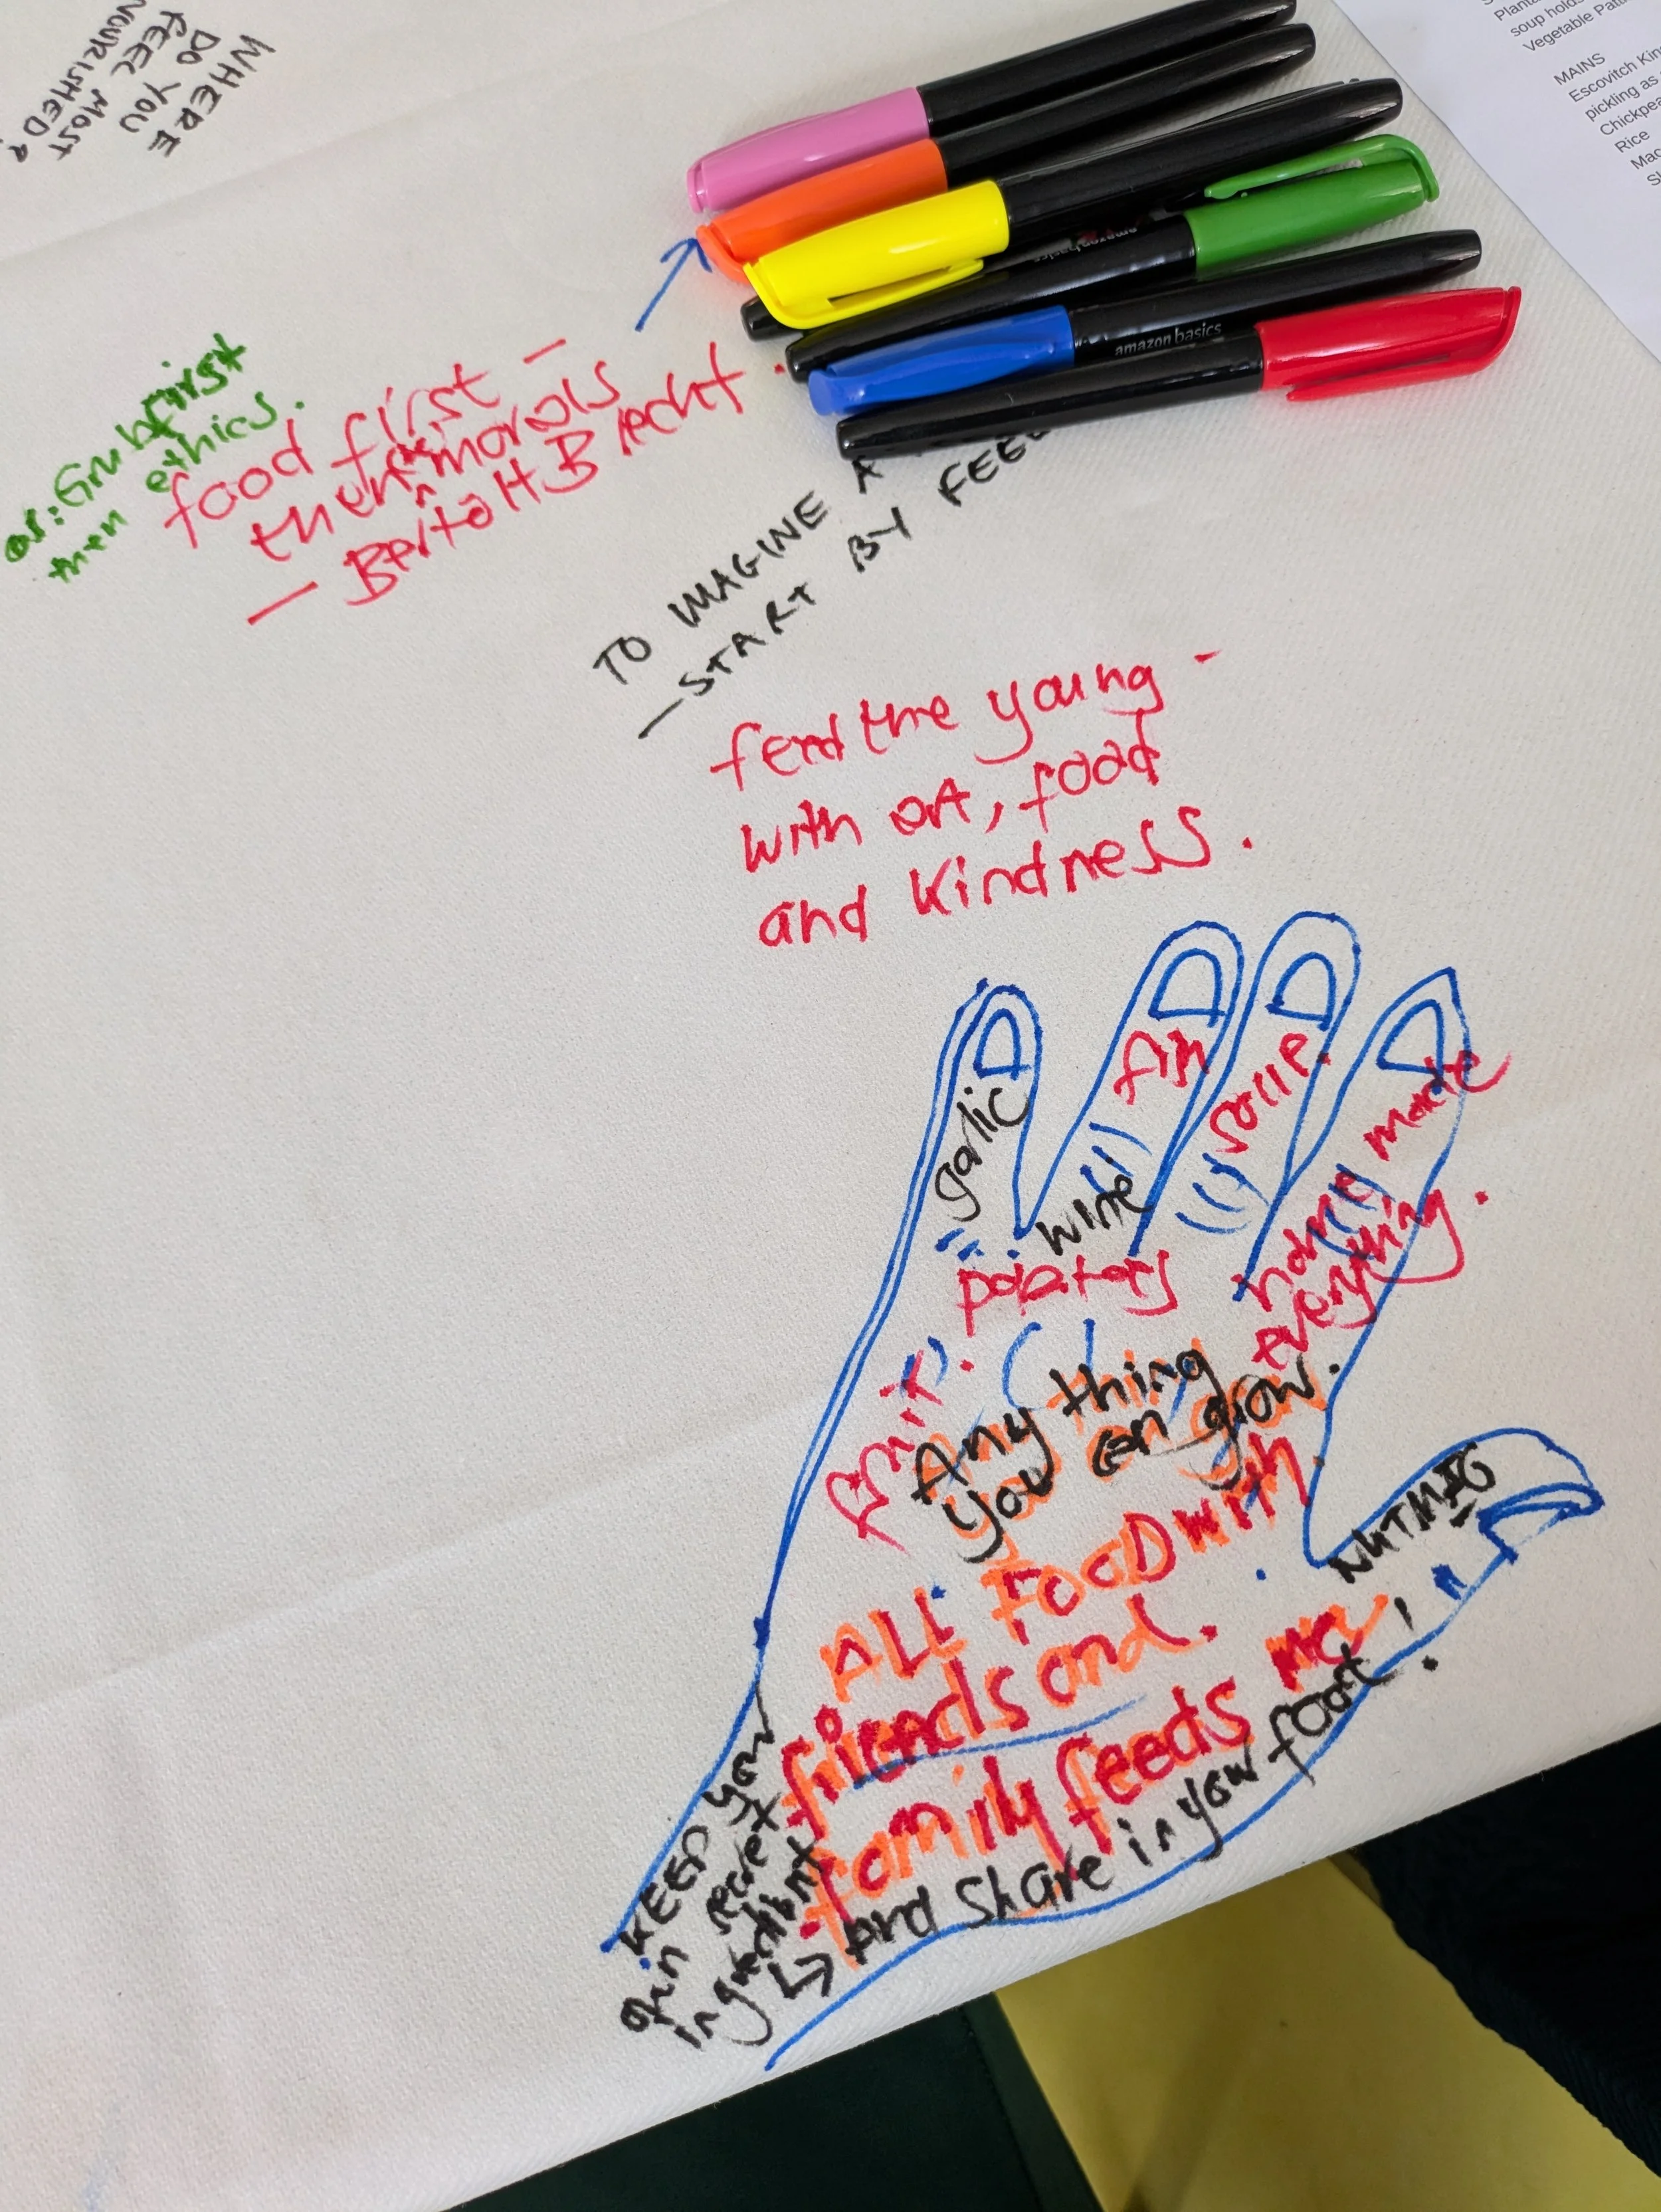 WHERE
DO YOU
FEEL MOST
NOURISHED?
soup
Vegetable
MAINS
Escovitch
pickling as
Rice
amazon basics
amazon basics
or: Grub first
then ethics.
food first -
then morals
- Bertolt Brecht.
TO IMAGINE A
- START BY
feed the young -
with art, food
and kindness.
garlic
wine
fish
home made
everything.
potatoes
fruit.
Anything
you can grow.
NUTMAG
ALL FOOD with
friends and
family feeds me
KEEP your
own secret
↳ and share in your food!